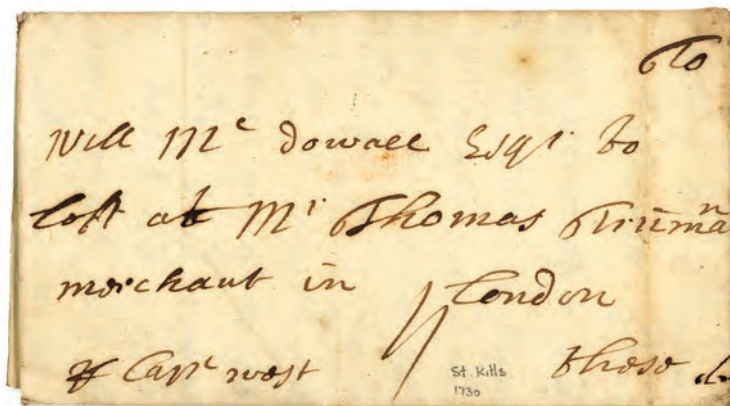 To
Will Mc dowall Esqr to
left at Mr Thomas Truman
merchant in London
Capt west these
St. Kitts
1730